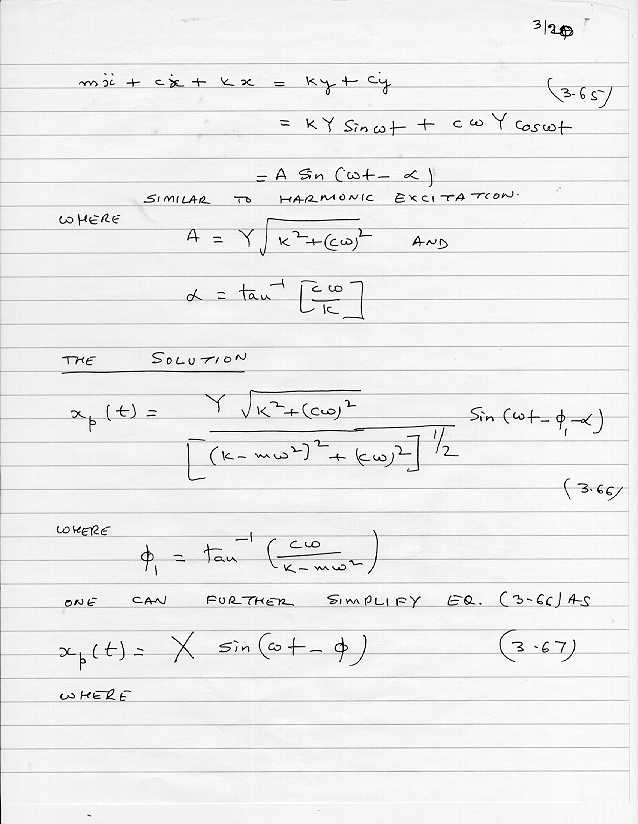 3/20
mẍ + cẋ + kx = ky + cẏ (3-65)
= kY Sin ωt + cωY cos ωt
= A Sin (ωt - α)
SIMILAR TO HARMONIC EXCITATION.
WHERE
A = Y√(k² + (cω)²) AND
α = tan⁻¹ [cω/k]
THE SOLUTION
xₚ(t) = Y √(k² + (cω)²) / [(k - mω²)² + (cω)²]^1/2 Sin (ωt - ϕ₁ - α)
(3.66)
WHERE
ϕ₁ = tan⁻¹ (cω / (k - mω²))
ONE CAN FURTHER SIMPLIFY EQ. (3-66) AS
xₚ(t) = X sin (ωt - ϕ) (3-67)
WHERE